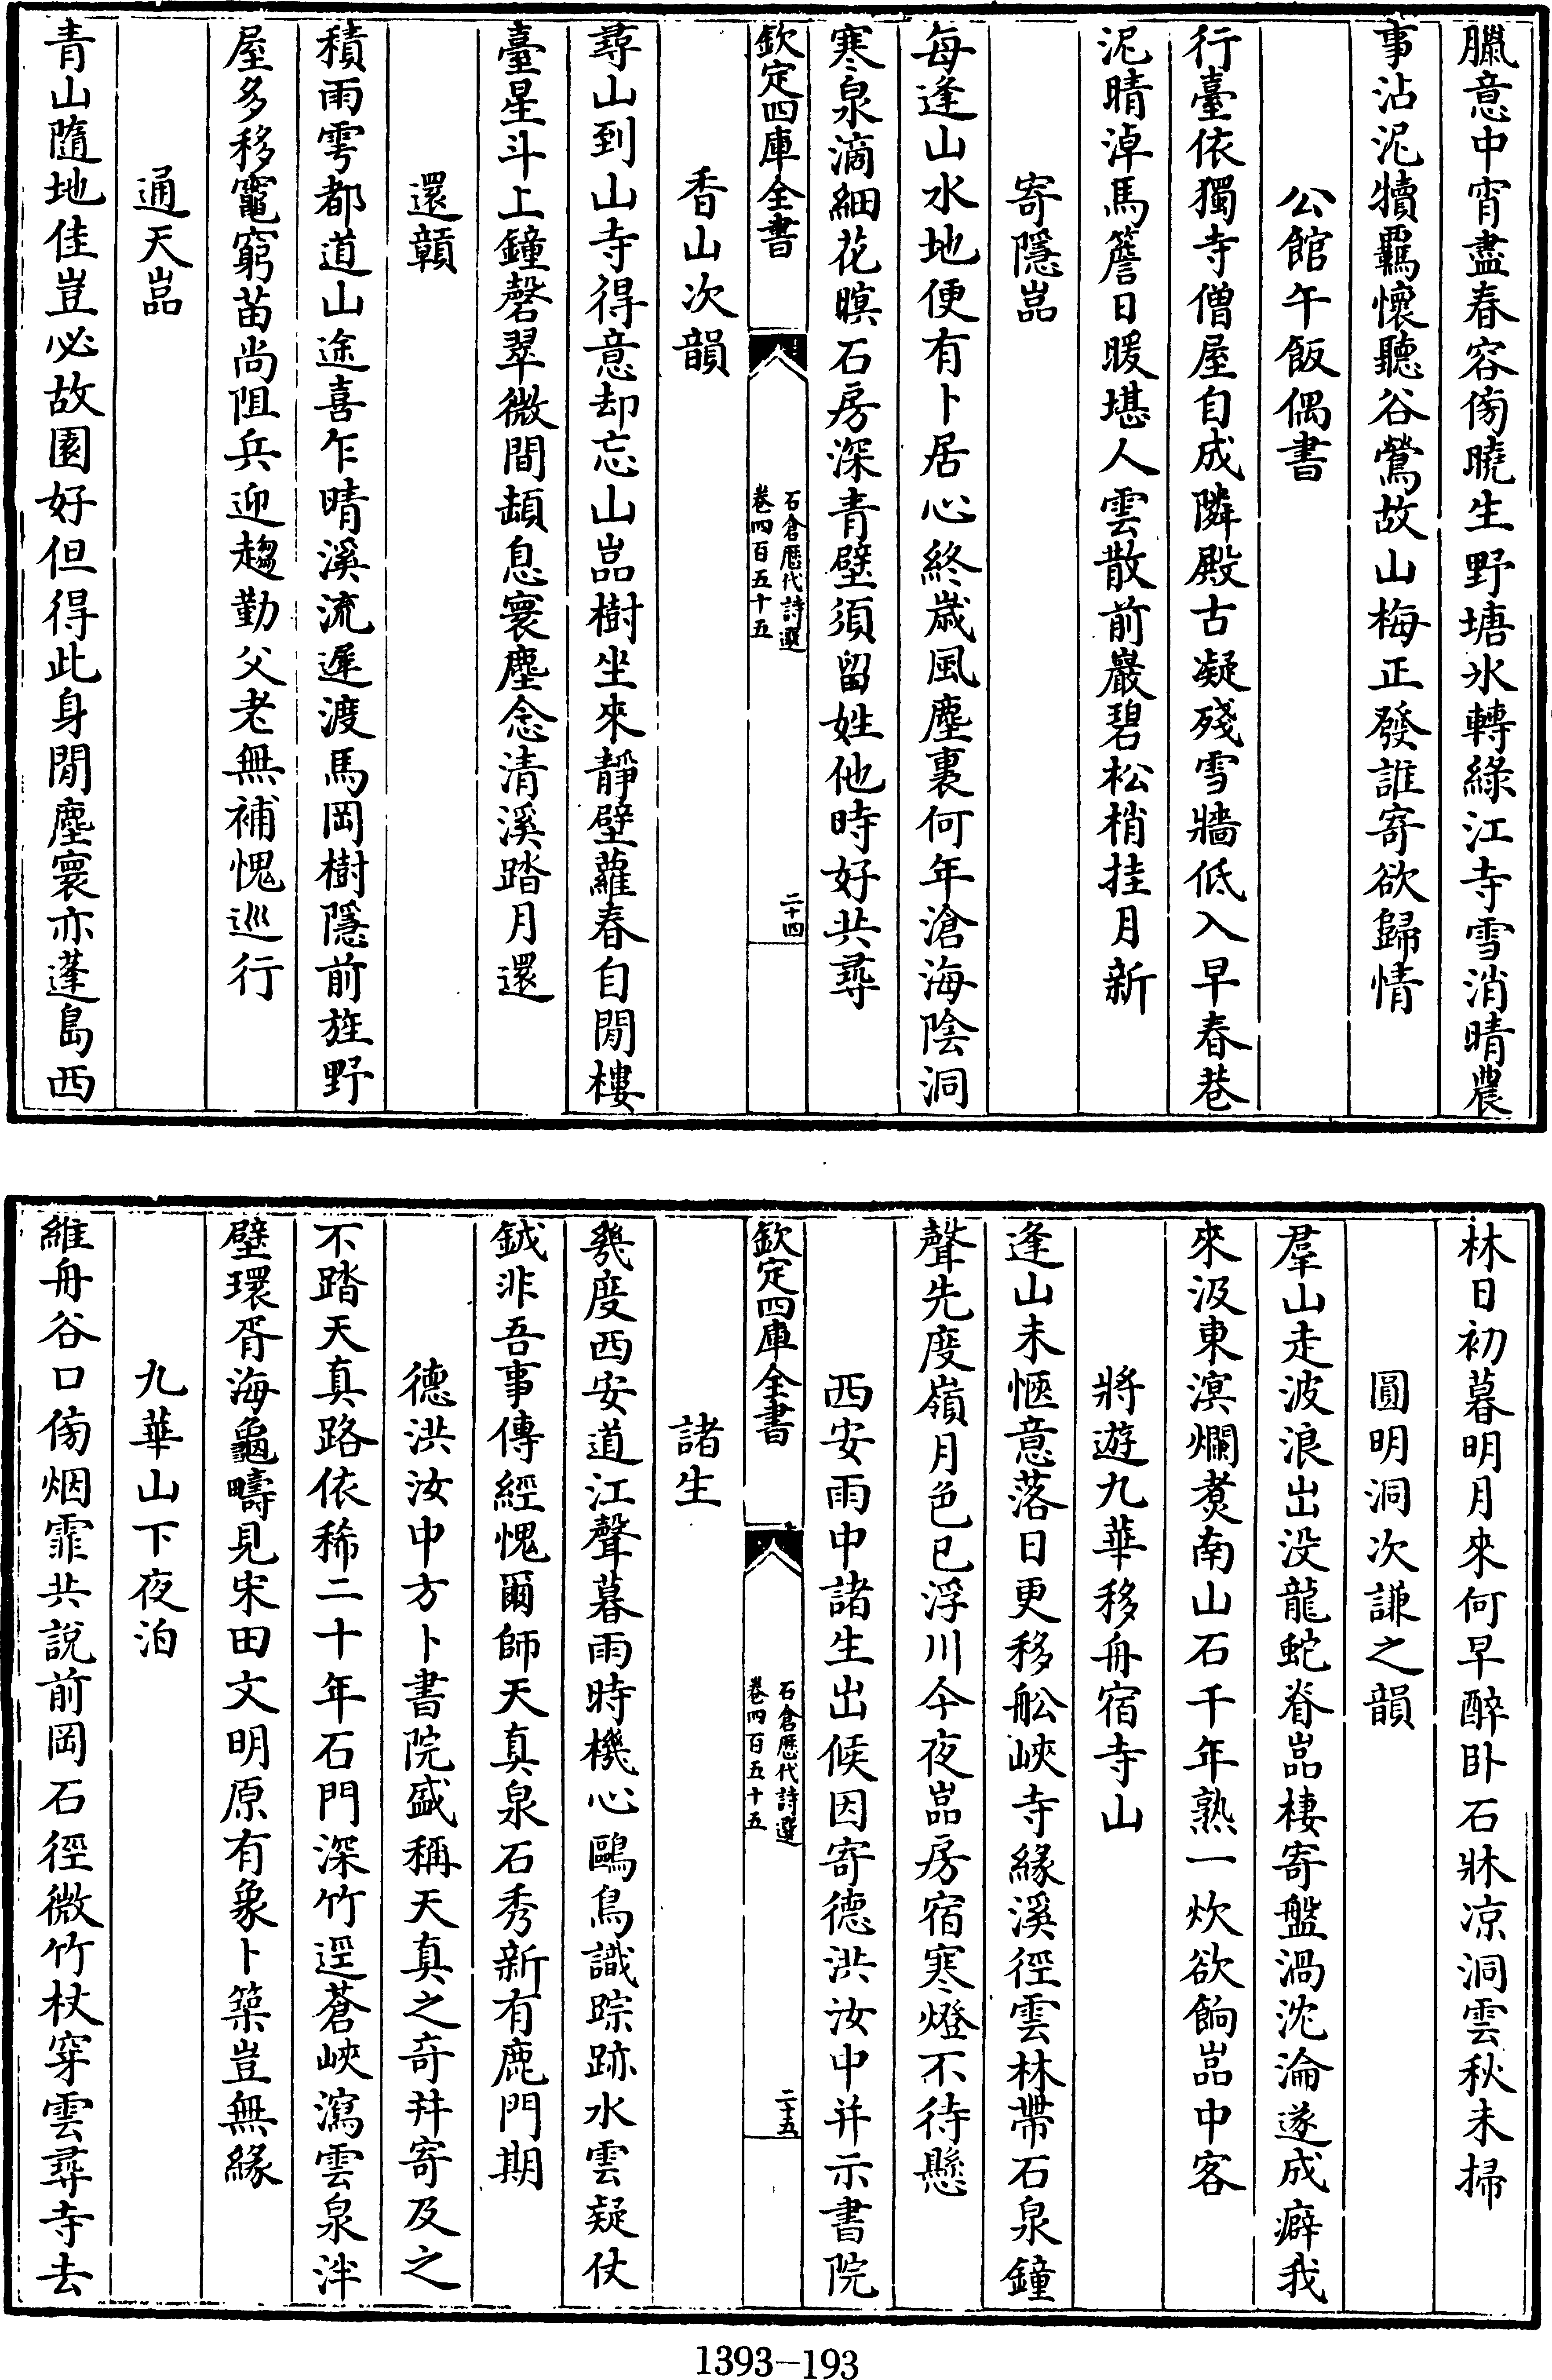 臘意中宵盡春容傍曉生野塘氷轉緑江寺雪消晴農
事沾泥犢羈懷聽谷鶯故山梅正發誰寄欲歸情
公館午飯偶書
行臺依獨寺僧屋自成隣殿古凝殘雪牆低入早春巷
泥晴淖馬簷日暖堪人雲散前巖碧松梢挂月新
寄隠嵓
每逢山水地便有卜居心終嵗風塵裏何年滄海陰洞
寒泉滴細花暝石房深青壁須留姓他時好共尋
欽定四庫全書
石倉歴代詩選
卷四百五十五
二十四
香山次韻
尋山到山寺得意却忘山嵓樹坐來靜壁蘿春自閒樓
臺星斗上鐘磬翠微間頓息寰塵念清溪踏月還
還贛
積雨雩都道山途喜乍晴溪流遲渡馬岡樹隠前旌野
屋多移竈窮苗尚阻兵迎趨勤父老無補愧巡行
通天嵓
青山隨地佳豈必故園好但得此身閒塵寰亦蓬島西
林日初暮明月來何早醉卧石牀凉洞雲秋未掃
圓明洞次謙之韻
羣山走波浪出没龍蛇脊嵓棲寄盤渦沈淪遂成癖我
來汲東溟爛煑南山石千年熟一炊欲餉嵓中客
將遊九華移舟宿寺山
逢山未愜意落日更移船峽寺緣溪徑雲林帶石泉鐘
聲先度嶺月色已浮川今夜嵓房宿寒燈不待懸
西安雨中諸生出候因寄德洪汝中并示書院
欽定四庫全書
石倉歴代詩選
卷四百五十五
二十五
諸生
幾度西安道江聲暮雨時機心鷗鳥識踪跡水雲疑仗
鉞非吾事傳經愧爾師天真泉石秀新有鹿門期
德洪汝中方卜書院盛稱天真之奇并寄及之
不踏天真路依稀二十年石門深竹逕蒼峽瀉雲泉泮
壁環胥海龜疇見宋田文明原有象卜築豈無緣
九華山下夜泊
維舟谷口傍烟霏共說前岡石徑微竹杖穿雲尋寺去
1393-193